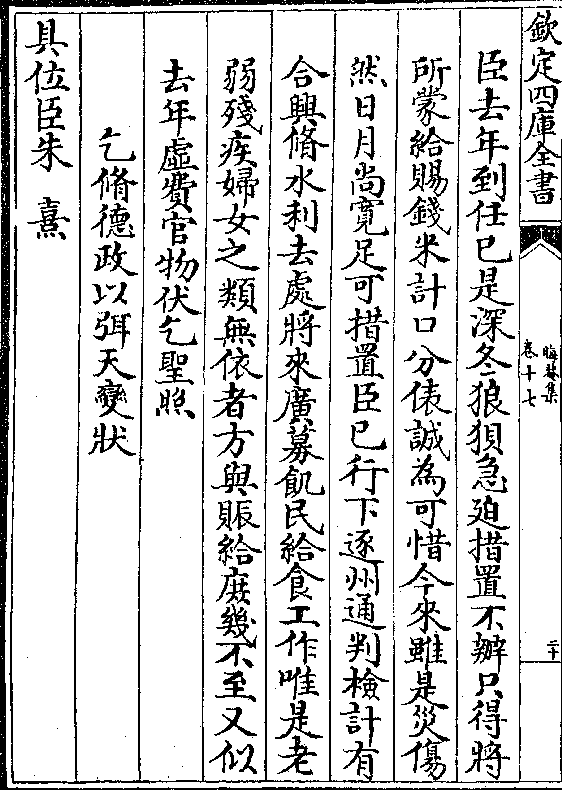 欽定四庫全書
晦菴集
卷十七
二十
臣去年到任已是深冬狼狽急迫措置不辦只得將
所蒙給賜錢米計口分俵誠為可惜今來雖是災傷
然日月尚寛足可措置臣已行下逐州通判檢計有
合興脩水利去處將來廣募飢民給食工作唯是老
弱殘疾婦女之類無依者方與賑給庶幾不至又似
去年虛費官物伏乞聖照
乞脩德政以弭天變狀
具位臣朱熹